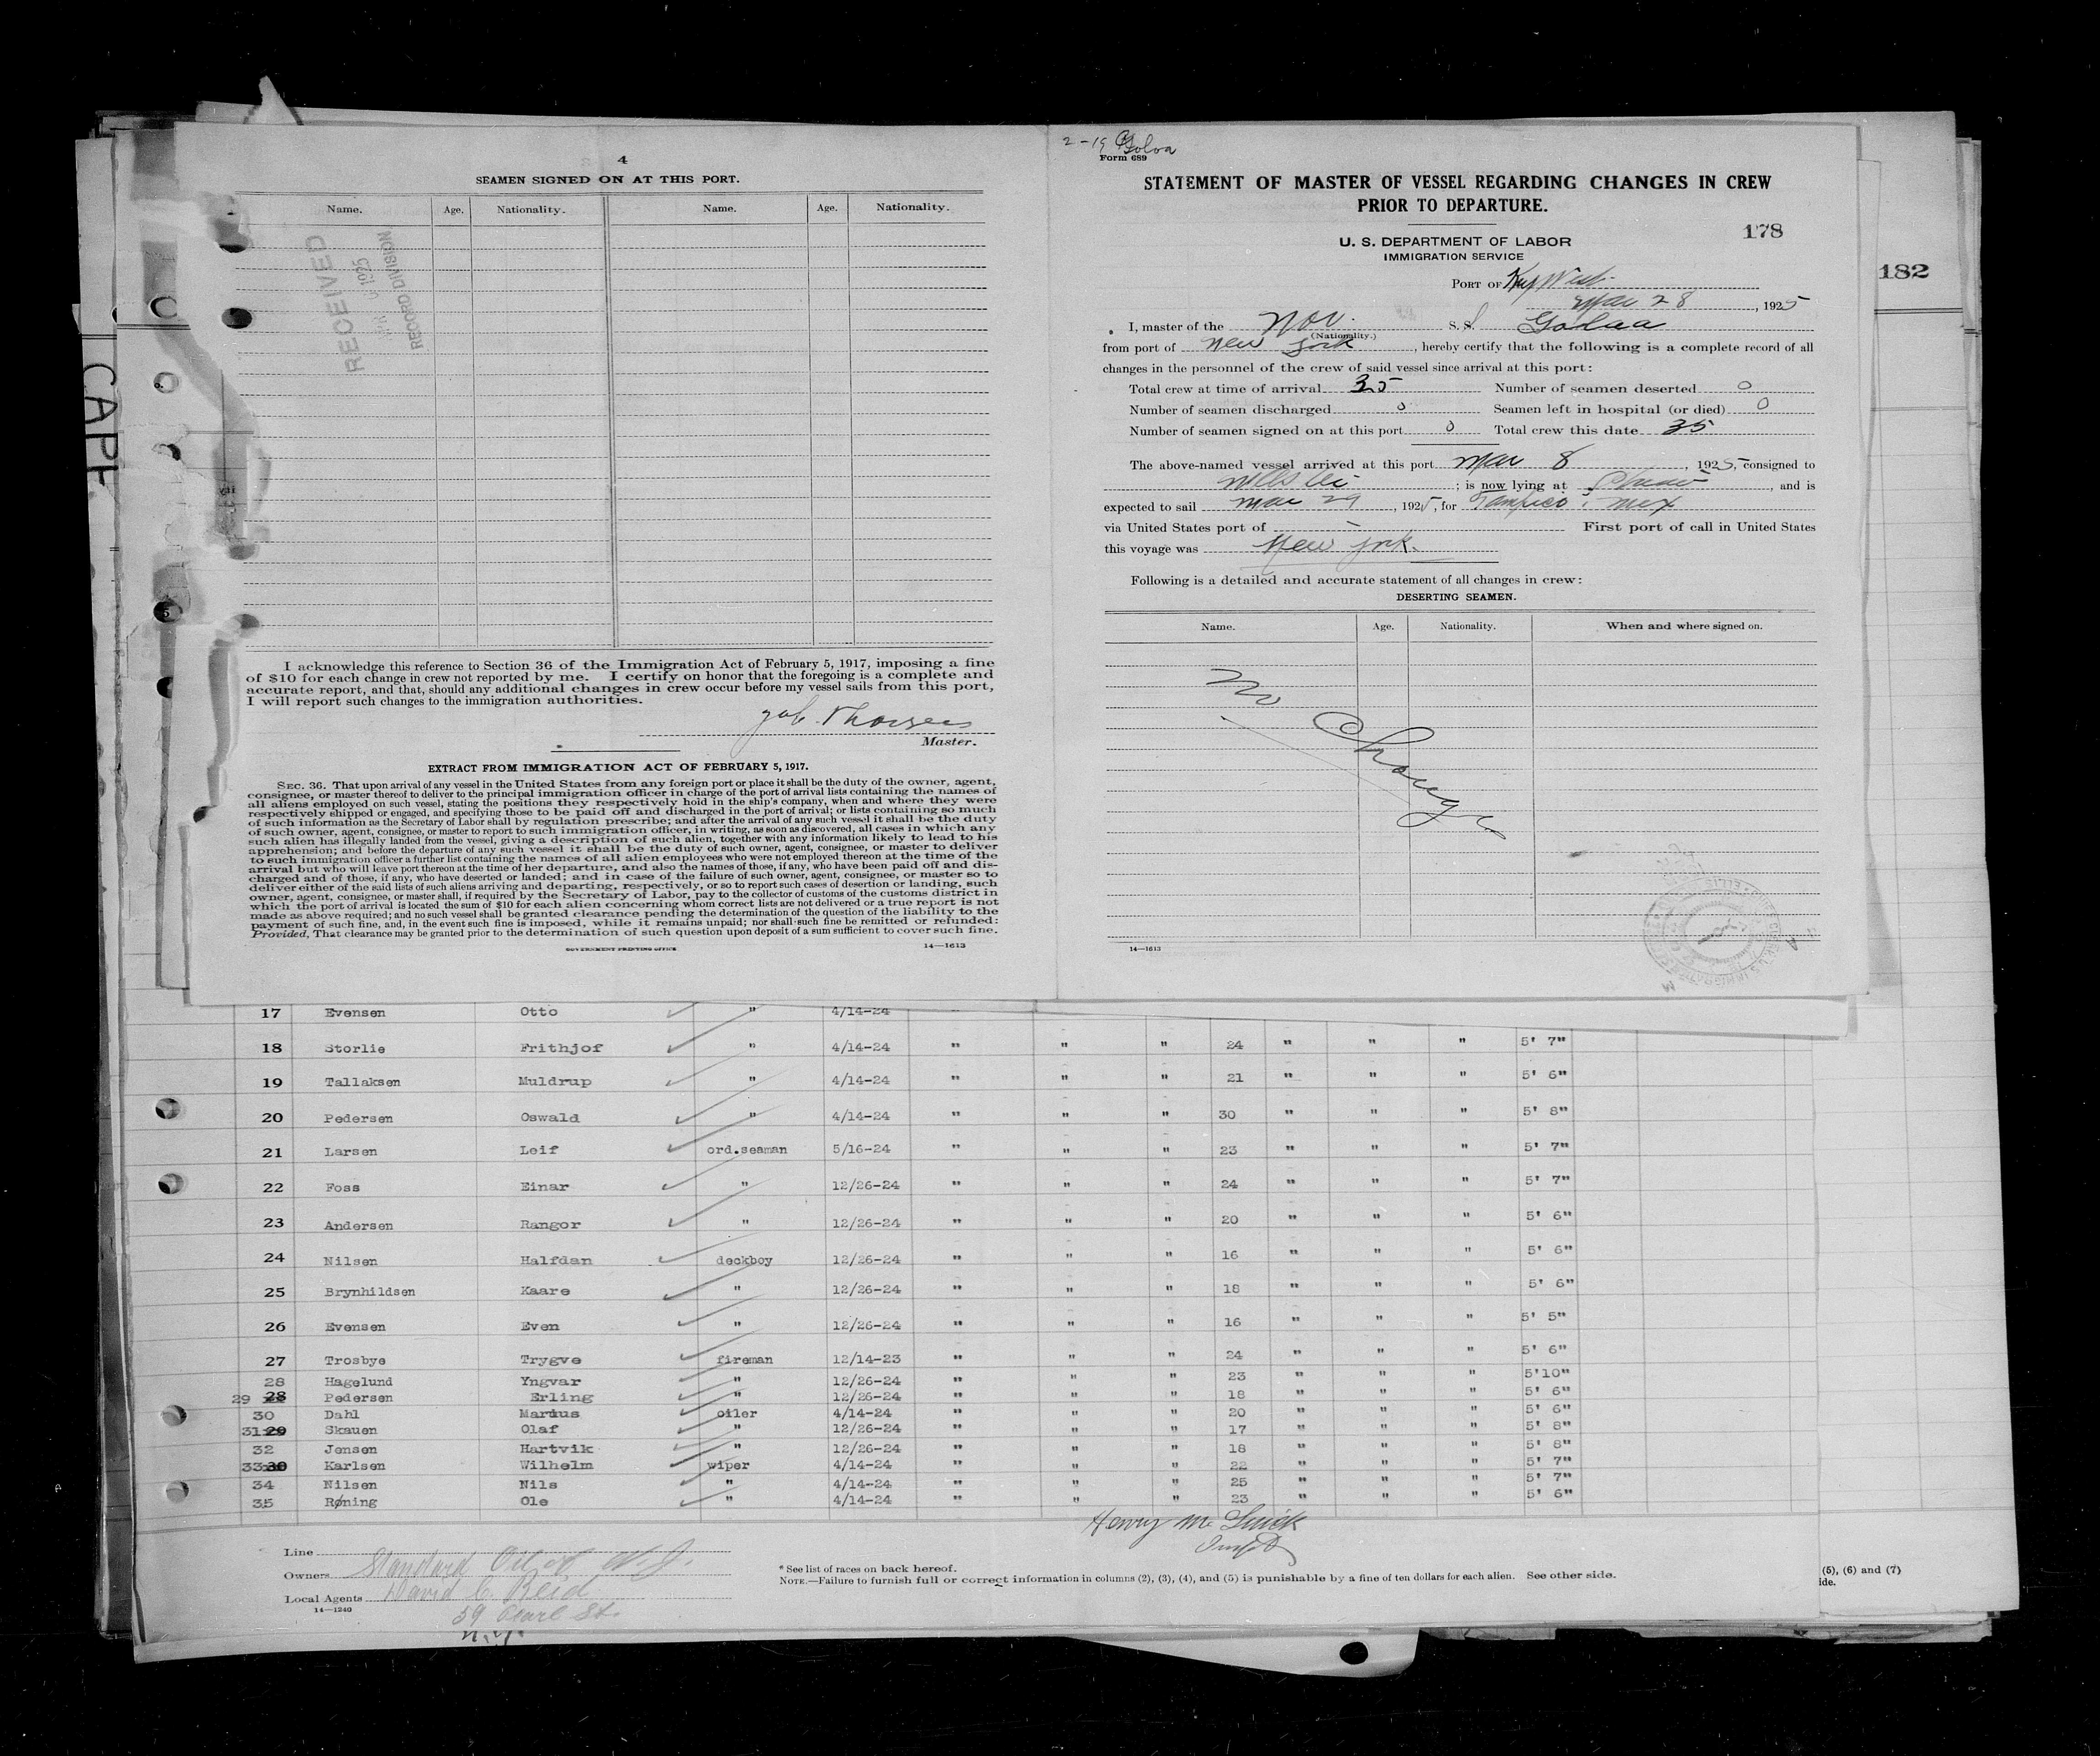 4
SEAMEN SIGNED ON AT THIS PORT.
Name. Age. Nationality. Name. Age. Nationality.
RECEIVED
1925
RECORD DIVISION
I acknowledge this reference to Section 36 of the Immigration Act of February 5, 1917, imposing a fine
of $10 for each change in crew not reported by me. I certify on honor that the foregoing is a complete and
accurate report, and that, should any additional changes in crew occur before my vessel sails from this port,
I will report such changes to the immigration authorities.
Master.
EXTRACT FROM IMMIGRATION ACT OF FEBRUARY 5, 1917.
SEC. 36. That upon arrival of any vessel in the United States from any foreign port or place it shall be the duty of the owner, agent,
consignee, or master thereof to deliver to the principal immigration officer in charge of the port of arrival lists containing the names of
all aliens employed on such vessel, stating the positions they respectively hold in the ship's company, when and where they were
respectively shipped or engaged, and specifying those to be paid off and discharged in the port of arrival; or lists containing so much
of such information as the Secretary of Labor shall by regulation prescribe; and after the arrival of any such vessel it shall be the duty
of such owner, agent, consignee, or master to report to such immigration officer, in writing, as soon as discovered, all cases in which any
such alien has illegally landed from the vessel, giving a description of such alien, together with any information likely to lead to his
apprehension; and before the departure of any such vessel it shall be the duty of such owner, agent, consignee, or master to deliver
to such immigration officer a further list containing the names of all alien employees who were not employed thereon at the time of the
arrival but who will leave port thereon at the time of her departure, and also the names of those, if any, who have been paid off and dis-
charged and of those, if any, who have deserted or landed; and in case of the failure of such owner, agent, consignee, or master so to
deliver either of the said lists of such aliens arriving and departing, respectively, or so to report such cases of desertion or landing, such
owner, agent, consignee, or master shall, if required by the Secretary of Labor, pay to the collector of customs of the customs district in
which the port of arrival is located the sum of $10 for each alien concerning whom correct lists are not delivered or a true report is not
made as above required; and no such vessel shall be granted clearance pending the determination of the question of the liability to the
payment of such fine, and, in the event such fine is imposed, while it remains unpaid; nor shall such fine be remitted or refunded:
Provided, That clearance may be granted prior to the determination of such question upon deposit of a sum sufficient to cover such fine.
GOVERNMENT PRINTING OFFICE 14—1613
2-19 Golaa
Form 689
STATEMENT OF MASTER OF VESSEL REGARDING CHANGES IN CREW
PRIOR TO DEPARTURE.
178
U. S. DEPARTMENT OF LABOR
IMMIGRATION SERVICE
PORT OF Key West
Mar 28, 1925
I, master of the Nor. S. S. Golaa
(Nationality.)
from port of New York, hereby certify that the following is a complete record of all
changes in the personnel of the crew of said vessel since arrival at this port:
Total crew at time of arrival 35 Number of seamen deserted 0
Number of seamen discharged 0 Seamen left in hospital (or died) 0
Number of seamen signed on at this port 0 Total crew this date 35
The above-named vessel arrived at this port Mar 8, 1925, consigned to
; is now lying at , and is
expected to sail Mar 29, 1925, for Tampico, Mex
via United States port of - First port of call in United States
this voyage was New York.
Following is a detailed and accurate statement of all changes in crew:
DESERTING SEAMEN.
Name. Age. Nationality. When and where signed on.
No Change
14—1613
182
CAPE
17 Evensen Otto " 4/14-24
18 Storlie Frithjof " 4/14-24 " " " 24 " " " 5' 7"
19 Tallaksen Muldrup " 4/14-24 " " " 21 " " " 5' 6"
20 Pedersen Oswald " 4/14-24 " " " 30 " " " 5' 8"
21 Larsen Leif ord.seaman 5/16-24 " " " 23 " " " 5' 7"
22 Foss Einar " 12/26-24 " " " 24 " " " 5' 7"
23 Andersen Rangor " 12/26-24 " " " 20 " " " 5' 6"
24 Nilsen Halfdan deckboy 12/26-24 " " " 16 " " " 5' 6"
25 Brynhildsen Kaare " 12/26-24 " " " 18 " " " 5' 6"
26 Evensen Even " 12/26-24 " " " 16 " " " 5' 5"
27 Trosbye Trygve fireman 12/14-23 " " " 24 " " " 5' 6"
28 Hagelund Yngvar " 12/26-24 " " " 23 " " " 5'10"
29 28 Pedersen Erling " 12/26-24 " " " 18 " " " 5' 6"
30 Dahl Marius oiler 4/14-24 " " " 20 " " " 5' 6"
31 29 Skauen Olaf " 12/26-24 " " " 17 " " " 5' 8"
32 Jensen Hartvik " 12/26-24 " " " 18 " " " 5' 8"
33 30 Karlsen Wilhelm wiper 4/14-24 " " " 22 " " " 5' 7"
34 Nilsen Nils " 4/14-24 " " " 25 " " " 5' 7"
35 Røning Ole " 4/14-24 " " " 23 " " " 5' 6"
Line
Owners Standard Oil of N.J.
Local Agents David C. Reid
14—1240
59 Pearl St.
N.Y.
* See list of races on back hereof.
NOTE.—Failure to furnish full or correct information in columns (2), (3), (4), and (5) is punishable by a fine of ten dollars for each alien. See other side.
(5), (6) and (7)
ide.